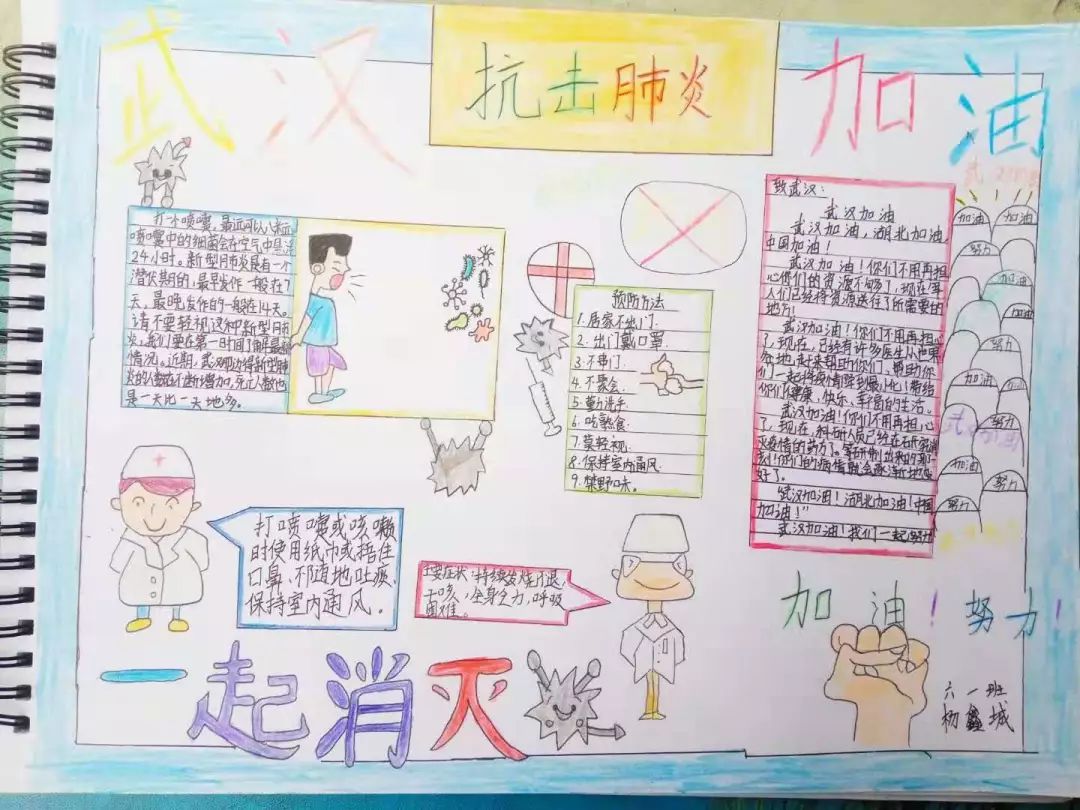 武汉
抗击肺炎
加油
打个喷嚏，最远可以八米远
喷嚏中的细菌会在空气中悬浮
24小时。新型肺炎是有一个
潜伏期的，最早发作一般在7
天，最晚发作的一般在14天。
请不要轻视这种新型肺
炎，我们要在第一时间了解最新
情况。近期，武汉那边得新型肺
炎的人数在不断增加，死亡人数也
是一天比一天地多。
预防方法
1.居家不出门.
2.出门戴口罩
3.不串门.
4.不聚会.
5.勤洗手
6.吃熟食.
7.莫轻视.
8.保持室内通风.
9.禁野味.
致武汉：
武汉加油
武汉加油，湖北加油，
中国加油！
武汉加油！你们不用再担
心你们的资源不够了，现在军
人们已经将资源送往了所需要的
地方！
武汉加油！你们不用再担心
了，现在，已经有许多医生从世界
各地，赶来帮助你们，帮助你
们一起将疫情降到最小化！带给
你们健康、快乐、幸福的生活。
武汉加油！你们不用再担心
了，现在，科研人员已经在研究消
灭疫情的药方了。等研制出来的那一
刻！你们的病情就会逐渐地变
好了。
“武汉加油！湖北加油！中国
加油！”
武汉加油！我们一起努力
加油
加油
努力
加油
加油
努力
加油
努力
加油
努力
努力
武汉加油
打喷嚏或咳嗽
时使用纸巾或捂住
口鼻、不随地吐痰、
保持室内通风.
主要症状：持续发烧不退，
干咳，全身乏力，呼吸
困难。
加油！努力！
一起消灭
六一班
杨鑫城